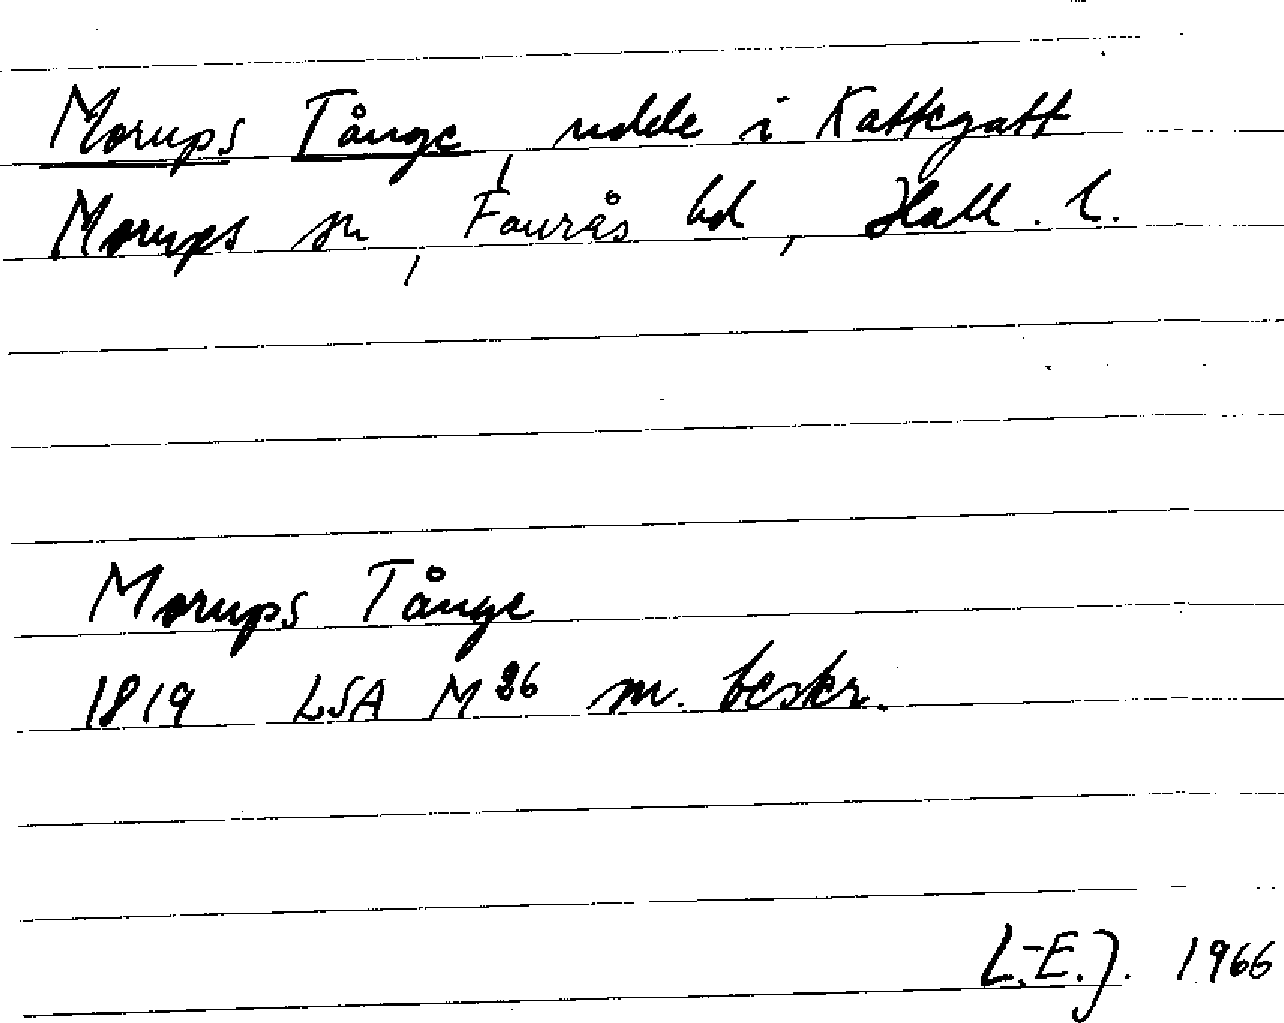 Morups Tånge, udde i Kattegatt
Morups sn, Faurås hd, Hall. l.
Morups Tånge
1819 LSA M 26 m. beskr.
L.-E.J. 1966